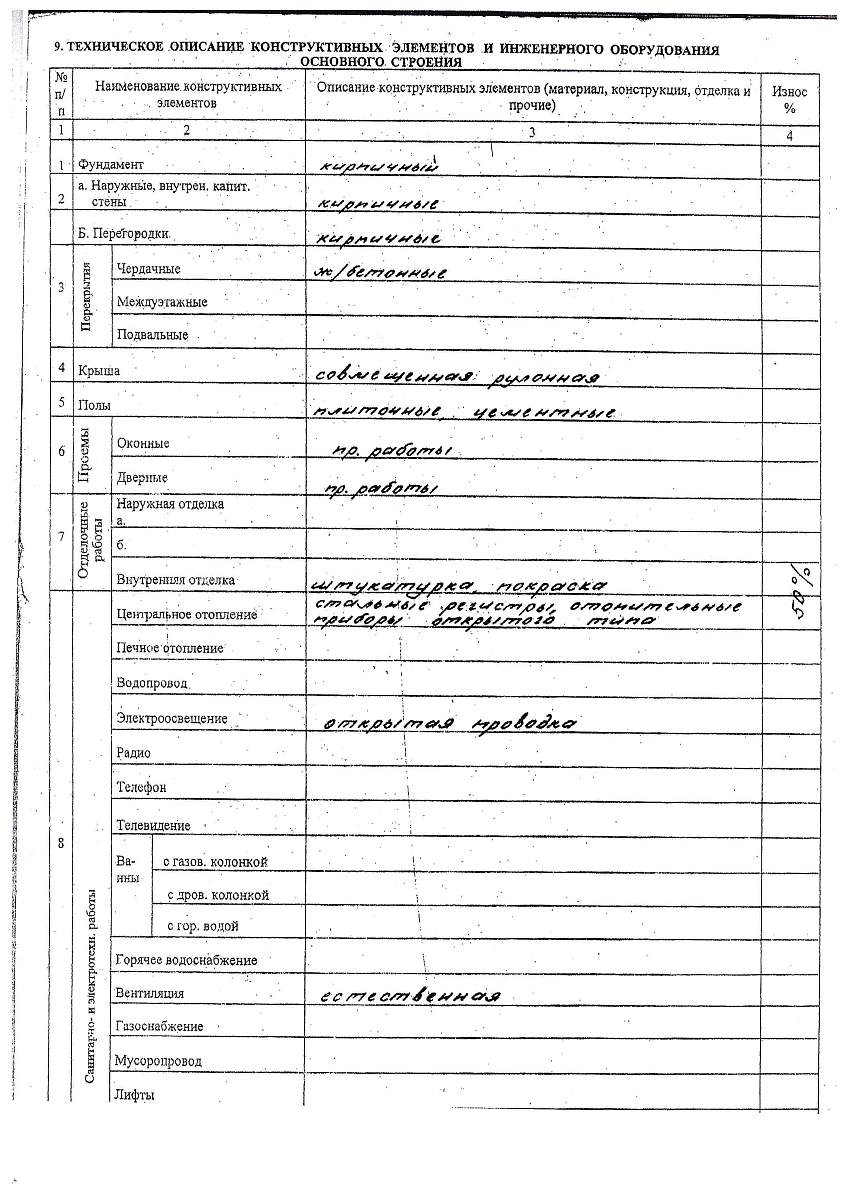 9. ТЕХНИЧЕСКОЕ ОПИСАНИЕ КОНСТРУКТИВНЫХ ЭЛЕМЕНТОВ И ИНЖЕНЕРНОГО ОБОРУДОВАНИЯ
ОСНОВНОГО СТРОЕНИЯ
№ п/п
Наименование конструктивных элементов
Описание конструктивных элементов (материал, конструкция, отделка и прочие)
Износ %
1 2 3 4
1 Фундамент кирпичный
2 а. Наружные, внутрен. капит. стены кирпичные
Б. Перегородки кирпичные
3 Перекрытия
Чердачные ж/бетонные
Междуэтажные
Подвальные
4 Крыша совмещенная рулонная
5 Полы плиточные, цементные
6 Проемы
Оконные пр. работы
Дверные пр. работы
7 Отделочные работы
Наружная отделка
а.
б.
Внутренняя отделка штукатурка, покраска
50%
8 Санитарно- и электротехн. работы
Центральное отопление стальные регистры, отопительные
приборы открытого типа
Печное отопление
Водопровод
Электроосвещение открытая проводка
Радио
Телефон
Телевидение
Ва-
нны
с газов. колонкой
с дров. колонкой
с гор. водой
Горячее водоснабжение
Вентиляция естественная
Газоснабжение
Мусоропровод
Лифты